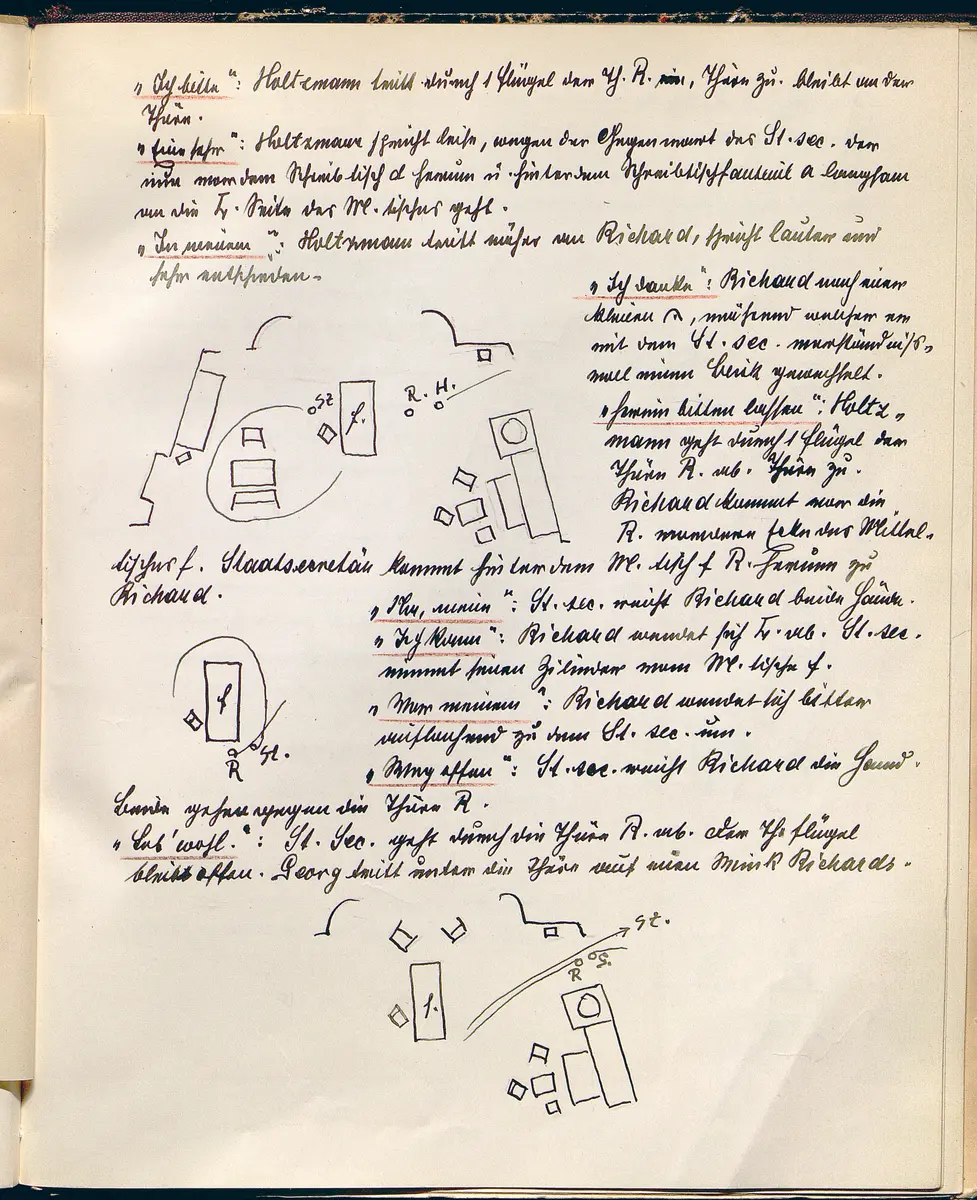 „Ich bitte“: Holtzmann tritt durch 1 Flügel der Th. R. ein, Thüre zu. bleibt an der
Thüre.
„Eine sehr“: Holtzmann spricht leise, wegen der Gegenwart des St. sec. der
nun vor dem Schreibtisch d herum u. hinter dem Schreibtischfauteuil a langsam
an die L. Seite des M. tisches geht.
„In meinem“: Holtzmann tritt näher an Richard, spricht lauter und
sehr entschieden.
„Ich danke“: Richard nach einer
kleinen 𝄐, während welcher er
mit dem St. sec. verständniss-
voll einen Blick gewechselt.
„herein bitten lassen“: Holtz-
mann geht durch 1 Flügel der
Thüre R. ab. Thüre zu.
Richard kommt vor die
R. vordere Ecke des Mittel-
tisches f. Staatssecretär kommt hinter dem M. tisch f R. herum zu
Richard.
St.
f.
R. H.
„Na, mein“: St. sec. reicht Richard beide Hände.
„Ich kann“: Richard wendet sich L. ab. St. sec.
nimmt seinen Zilinder vom M. tische f.
„Vor meinem“: Richard wendet sich bitter
auflachend zu dem St. sec. um.
„Weg offen“: St. sec. reicht Richard die Hand.
f
R
St.
Beide gehen gegen die Thüre R.
„Leb' wohl.“: St. Sec. geht durch die Thüre R. ab. Der Th. flügel
bleibt offen. Georg tritt unter die Thüre auf einen Wink Richards.
St.
R
G.
f.